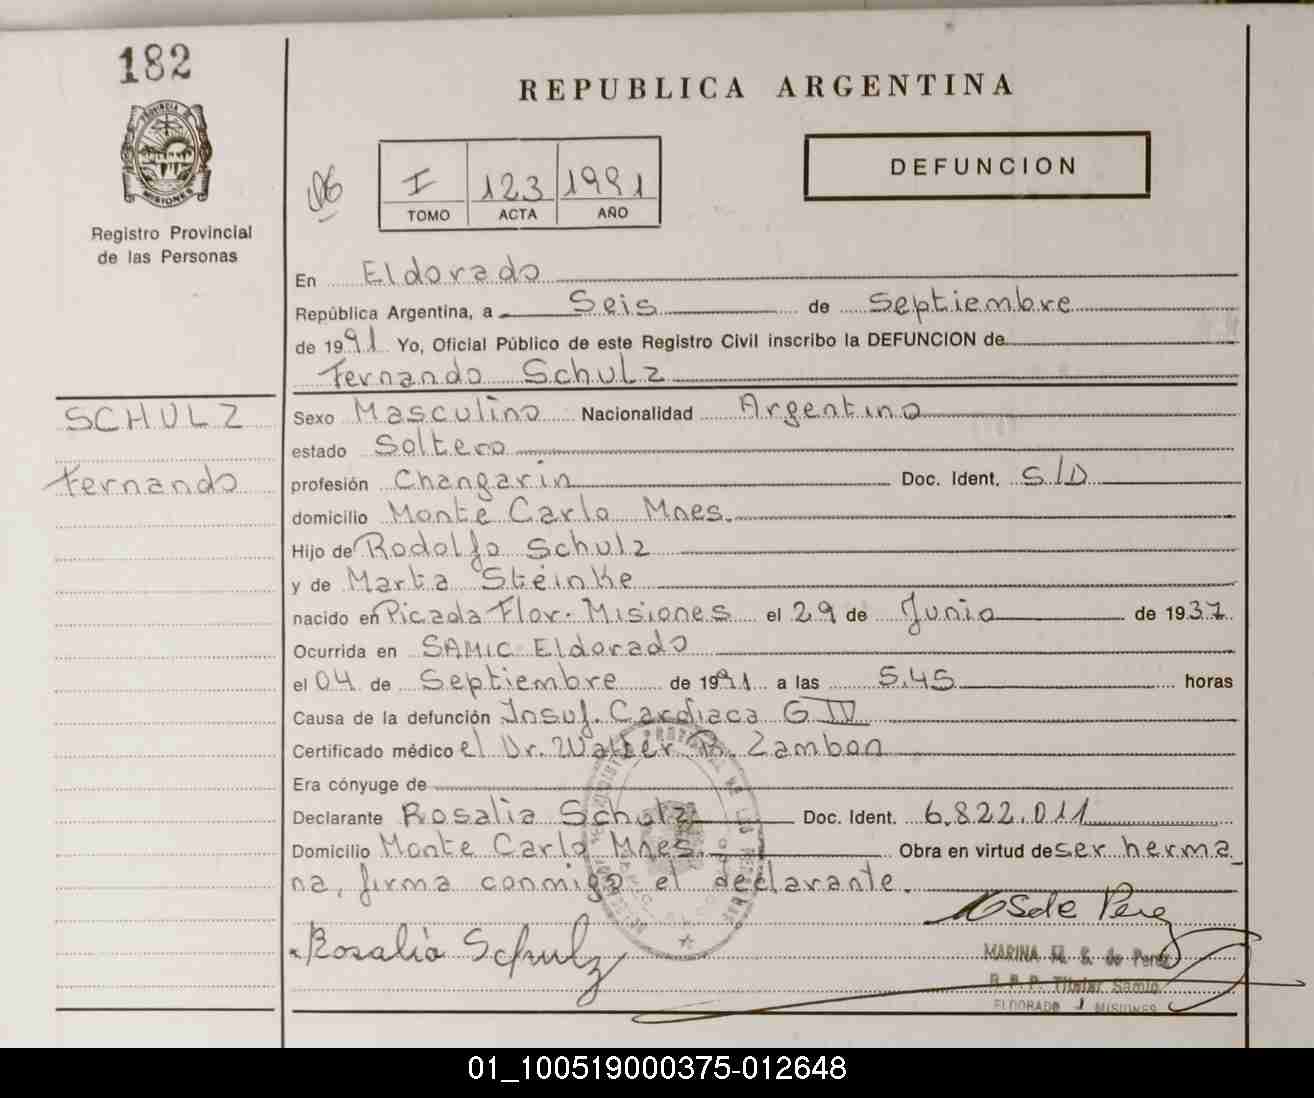 182
REPUBLICA ARGENTINA
PROVINCIA DE
MISIONES
Registro Provincial
de las Personas
I 123 1991
TOMO ACTA AÑO
DEFUNCION
En Eldorado
República Argentina, a Seis de Septiembre
de 1991 Yo, Oficial Público de este Registro Civil inscribo la DEFUNCION de
Fernando Schulz
SCHULZ
Fernando
Sexo Masculino Nacionalidad Argentino
estado Soltero
profesión Changarin Doc. Ident. S/D
domicilio Monte Carlo Mnes.
Hijo de Rodolfo Schulz
y de Marta Steinke
nacido en Picada Flor. Misiones el 29 de Junio de 1937
Ocurrida en SAMIC Eldorado
el 04 de Septiembre de 1991 a las 5.45 horas
Causa de la defunción Insuf. Cardiaca G IV
Certificado médico el Dr. Walter R. Zambon
Era cónyuge de
Declarante Rosalia Schulz Doc. Ident. 6.822.011
Domicilio Monte Carlo Mnes. Obra en virtud de ser herma_
na, firma conmigo el declarante.
MSde Perez
Rosalia Schulz
MARINA M. S. de Perez
Titular Samic
ELDORADO - MISIONES
01_100519000375-012648